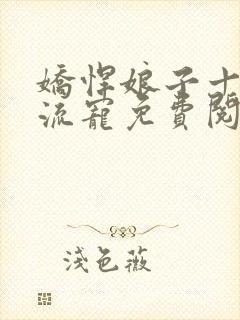 嬌悍娘子十
流寵免費閱
淺色薇